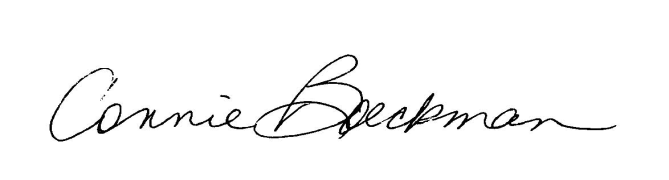 Connie Boeckman